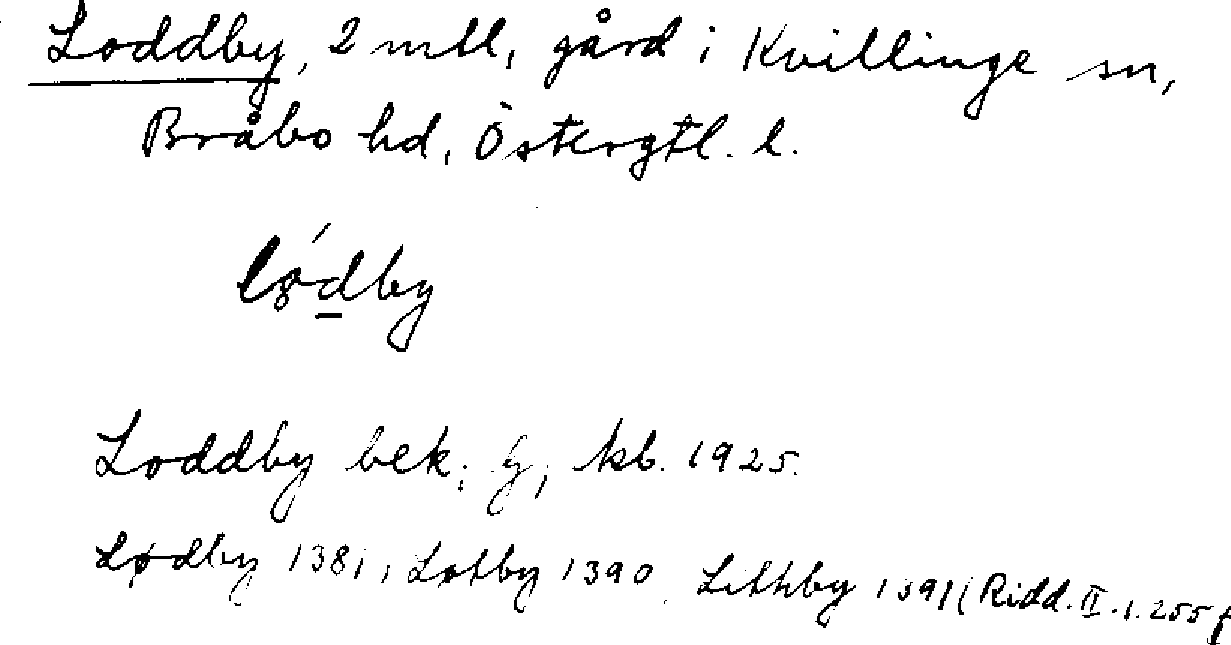 Loddby, 2 mtl, gård i Kvillinge sn,
Bråbo hd, Östergtl. l.
Loddby bek. g, kb. 1925.
Lødby 1381, Lotby 1390 1391 (Ridd. II. 1. 255 f